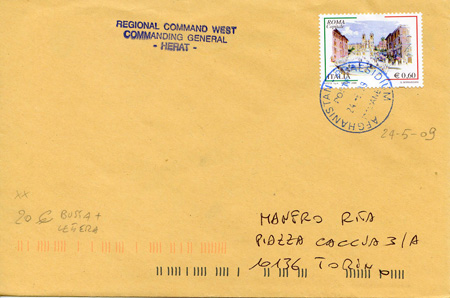 REGIONAL COMMAND WEST
COMMANDING GENERAL
- HERAT -
ROMA
Capitale
ITALIA
€ 0,60
AFGHANISTAN
24-5-09
xx
20 €
BUSTA +
LETTERA
MANERO RITA
PIAZZA CACCIA 3/A
10136 TORINO